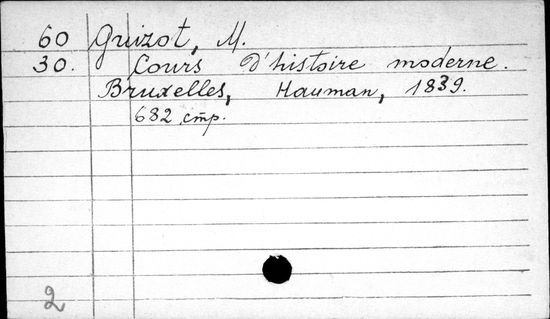 60 Guizot, M.
30. Cours d'histoire moderne.
Bruxelles, Hauman, 1839.
682 стр.
2